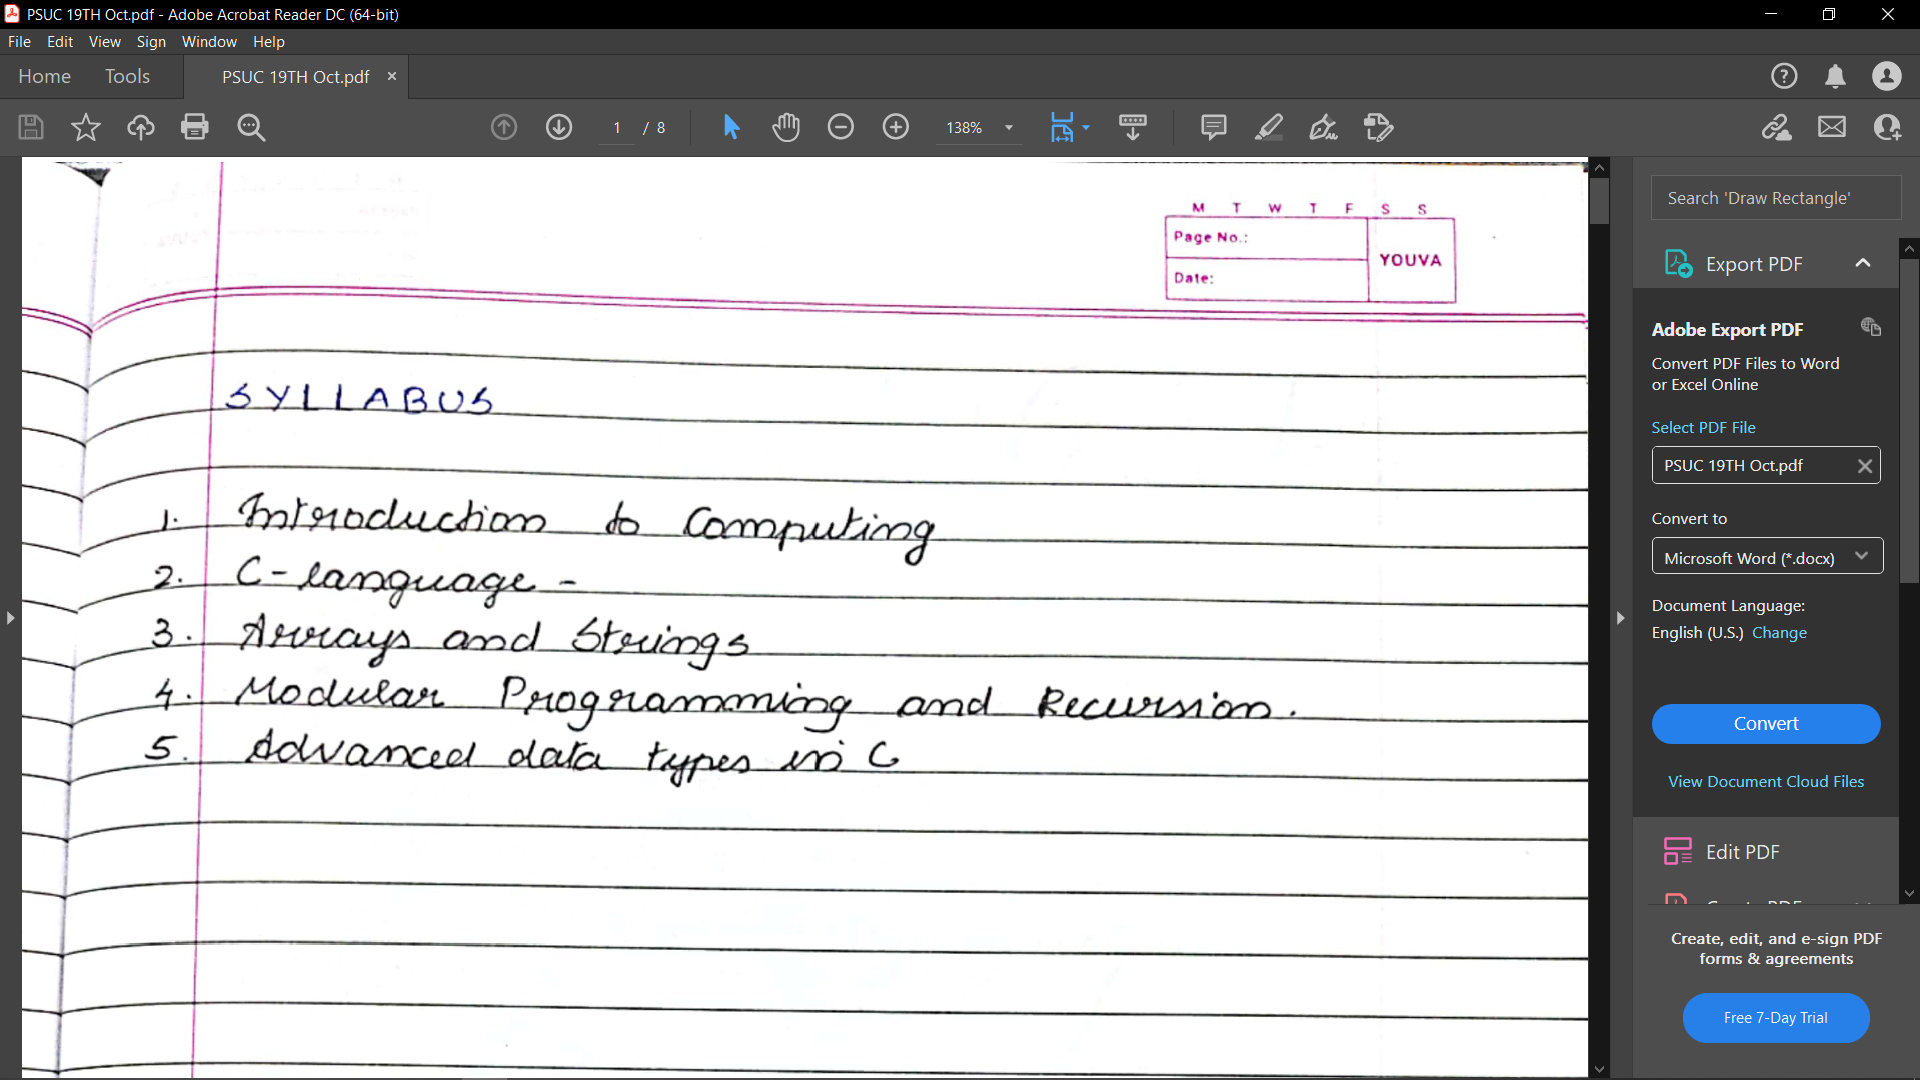 PSUC 19TH Oct.pdf - Adobe Acrobat Reader DC (64-bit)
File Edit View Sign Window Help
Home Tools PSUC 19TH Oct.pdf ×
1 / 8 138%
Search 'Draw Rectangle'
M T W T F S S
Page No.:
YOUVA
Date:
SYLLABUS
1. Introduction to Computing
2. C-language -
3. Arrays and Strings
4. Modular Programming and Recursion.
5. Advanced data types in C
Export PDF
Adobe Export PDF
Convert PDF Files to Word
or Excel Online
Select PDF File
PSUC 19TH Oct.pdf
Convert to
Microsoft Word (*.docx)
Document Language:
English (U.S.) Change
Convert
View Document Cloud Files
Edit PDF
Create, edit, and e-sign PDF
forms & agreements
Free 7-Day Trial